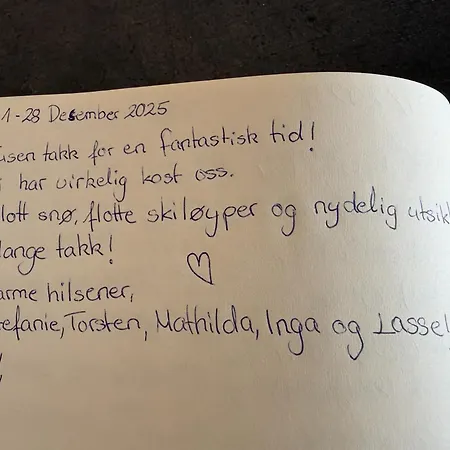 1-28 Desember 2025
usen takk for en fantastisk tid!
i har virkelig kost oss.
lott snø, flotte skiløyper og nydelig utsik
ange takk!
♡
arme hilsener,
efanie, Torsten, Mathilda, Inga og Lasse